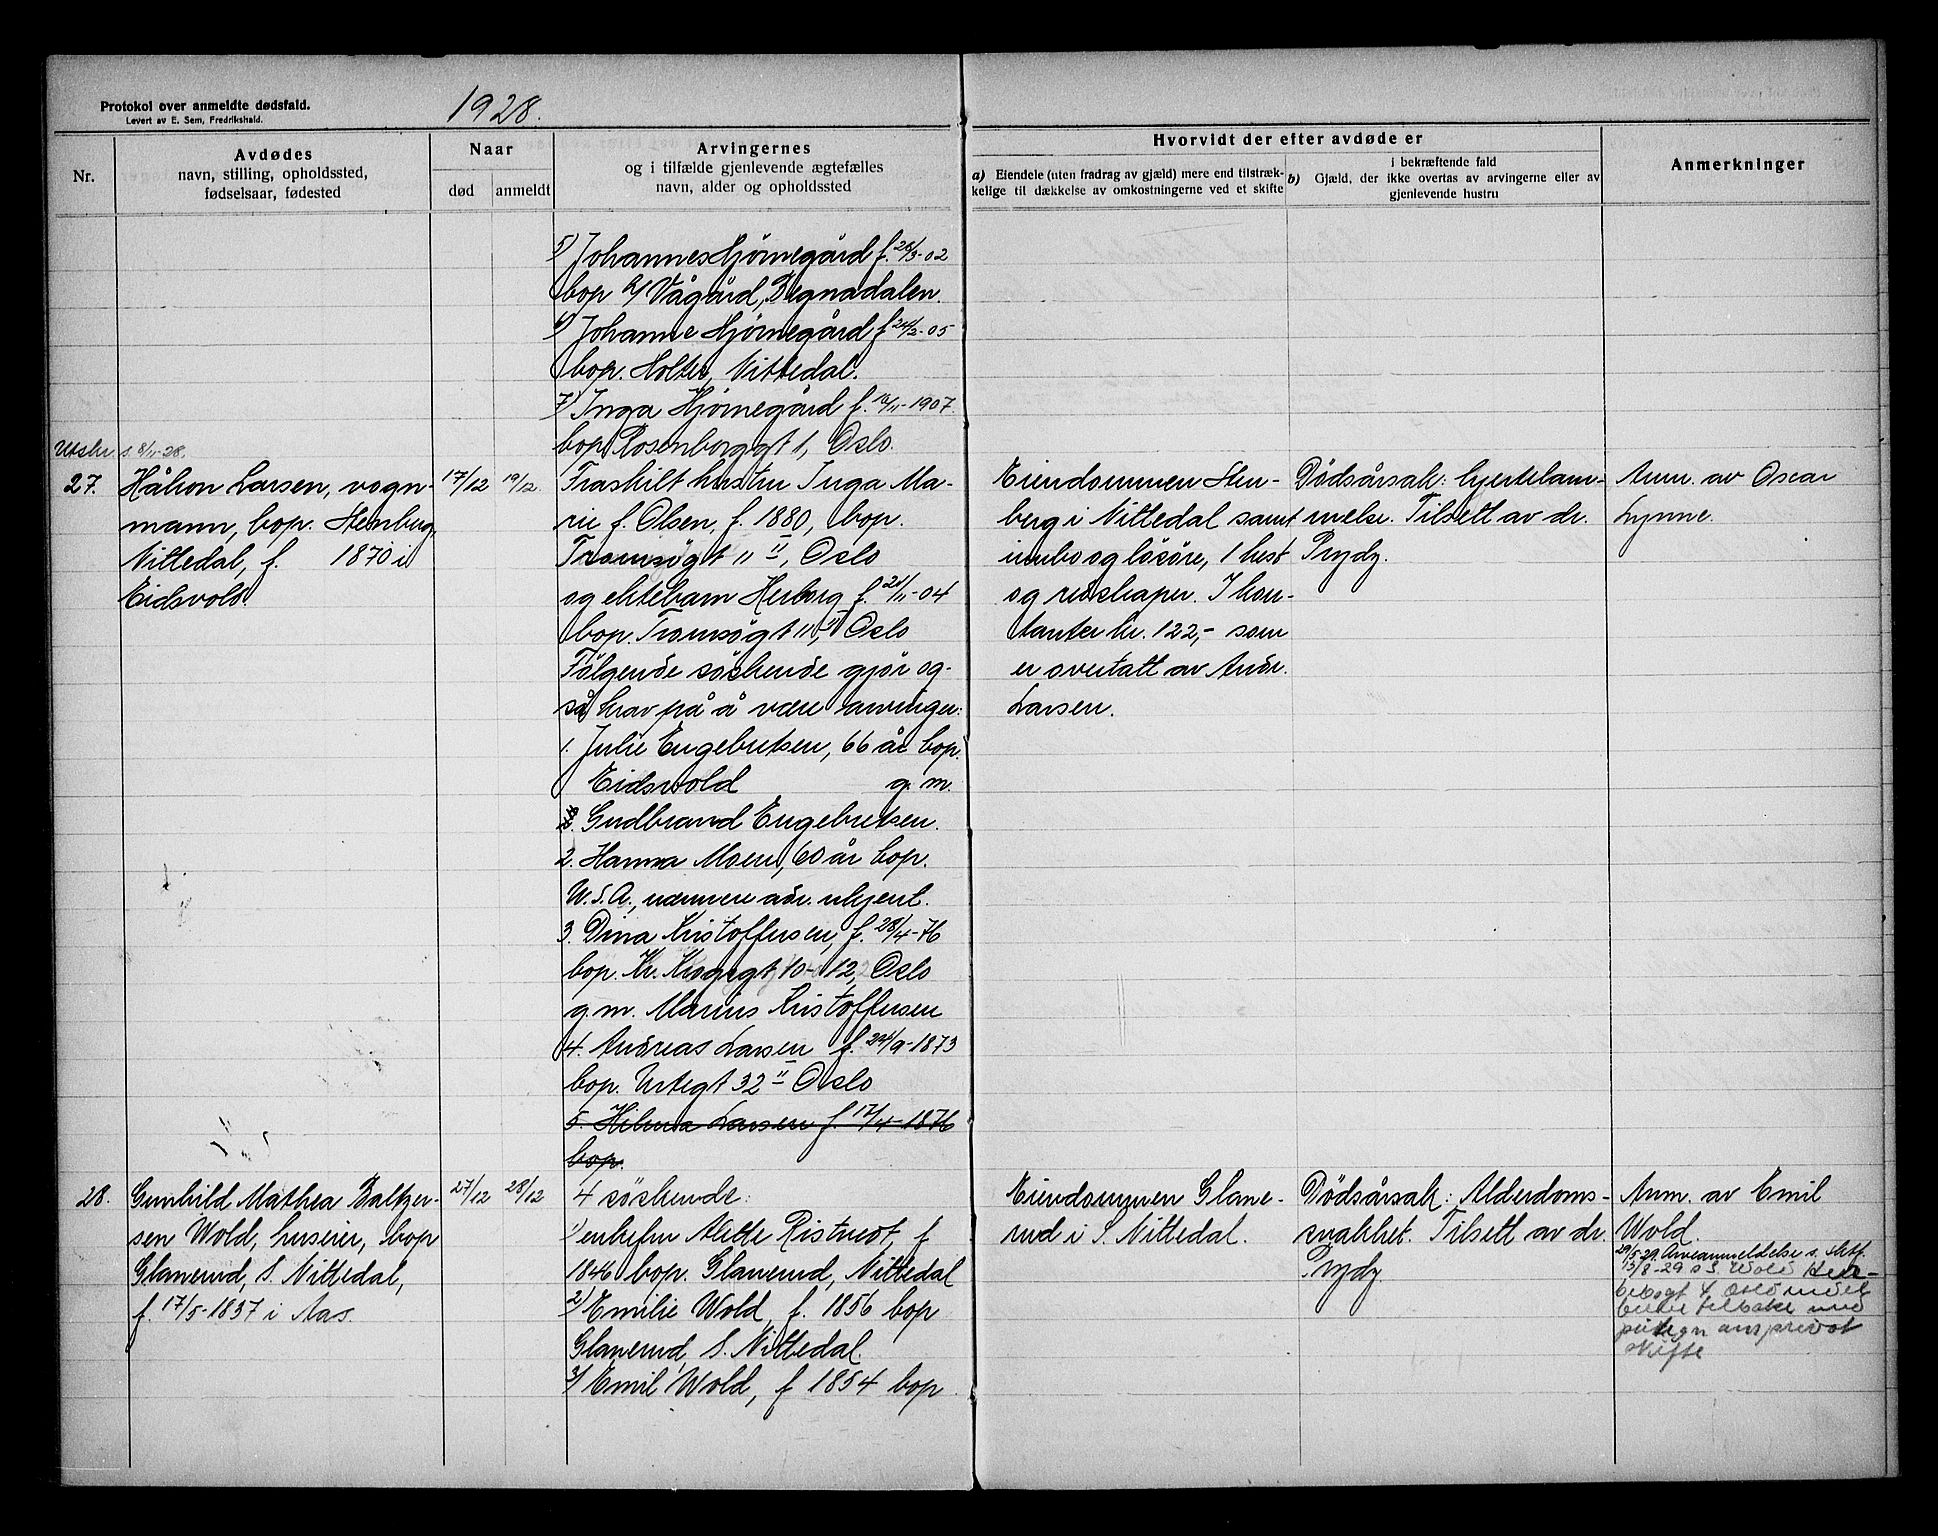 Protokol over anmeldte dødsfald.
Levert av E. Sem, Fredrikshald.
1928.
Nr.
Avdødes
navn, stilling, opholdssted,
fødselsaar, fødested
Naar
død
anmeldt
Arvingernes
og i tilfælde gjenlevende ægtefælles
navn, alder og opholdssted
Hvorvidt der efter avdøde er
a) Eiendele (uten fradrag av gjæld) mere end tilstræk-
kelige til dækkelse av omkostningerne ved et skifte
i bekræftende fald
b) Gjæld, der ikke overtas av arvingerne eller av
gjenlevende hustru
Anmerkninger
5) Johannes Hjørnegård f. 26/3-02
bop Vågård, Begnadalen.
6) Johanne Hjørnegård f 24/2-05
bop. Holter, Nittedal.
7) Inga Hjørnegård f. 10/11-1907.
bop Rosenborggt 1, Oslo.
Utskr. s. 8/11-28.
27.
Håkon Larsen, vogn-
mann, bop. Stenberg,
Nittedal, f. 1870 i
Eidsvold.
17/12
19/12.
Fraskilt hustru Inga Ma-
rie f. Olsen, f. 1880, bop.
Tromsøgt 11 II, Oslo
og ektebarn Herborg f. 21/11-04
bop. Tromsøgt 11 II, Oslo
Følgende søskende gjør og-
så krav på å være arvinger:
1. Julie Engebretsen, 66 år bop.
Eidsvold g. m.
Gudbrand Engebretsen.
2. Hanna Moen, 60 år bop.
U.S.A., nærmere adr. ukjent.
3. Dina Kristoffersen, f. 28/4-76
bop. Kr. Kroggt 10-12, Oslo
g. m. Marius Kristoffersen
4. Andreas Larsen f. 29/9-1873
bop. Urtegt 32 II Oslo
5. Hilma Larsen f. 17/4-1876
bop.
Eiendommen Sten-
berg i Nittedal samt
innbo og løsøre, 1 hest
og redskaper. I kon-
tanter kr. 122,- som
er overtatt av Andr.
Larsen.
Dødsårsak: hjertelam-
melse. Tilsett av dr.
Prydz.
Anm. av Oscar
Lynne.
28.
Gunhild Mathea Baltzer-
sen Wold, huseier, bop
Glanerud, S. Nittedal,
f. 17/5-1837 i Aas.
27/12
28/12
4 søskende:
1) enkefru Alette Ristvedt, f
1846 bop. Glanerud, Nittedal
2) Emilie Wold, f. 1856 bop
Glanerud, S. Nittedal.
3) Emil Wold, f 1854 bop
Eiendommen Glane-
rud i S. Nittedal.
Dødsårsak: Alderdoms-
svakhet. Tilsett av dr.
Prydz
Anm. av Emil
Wold.
29/5-29 Arveanmeldelse s. sktf.
13/8-29 Wold
4 Oslo
tilbake med
privat
skifte